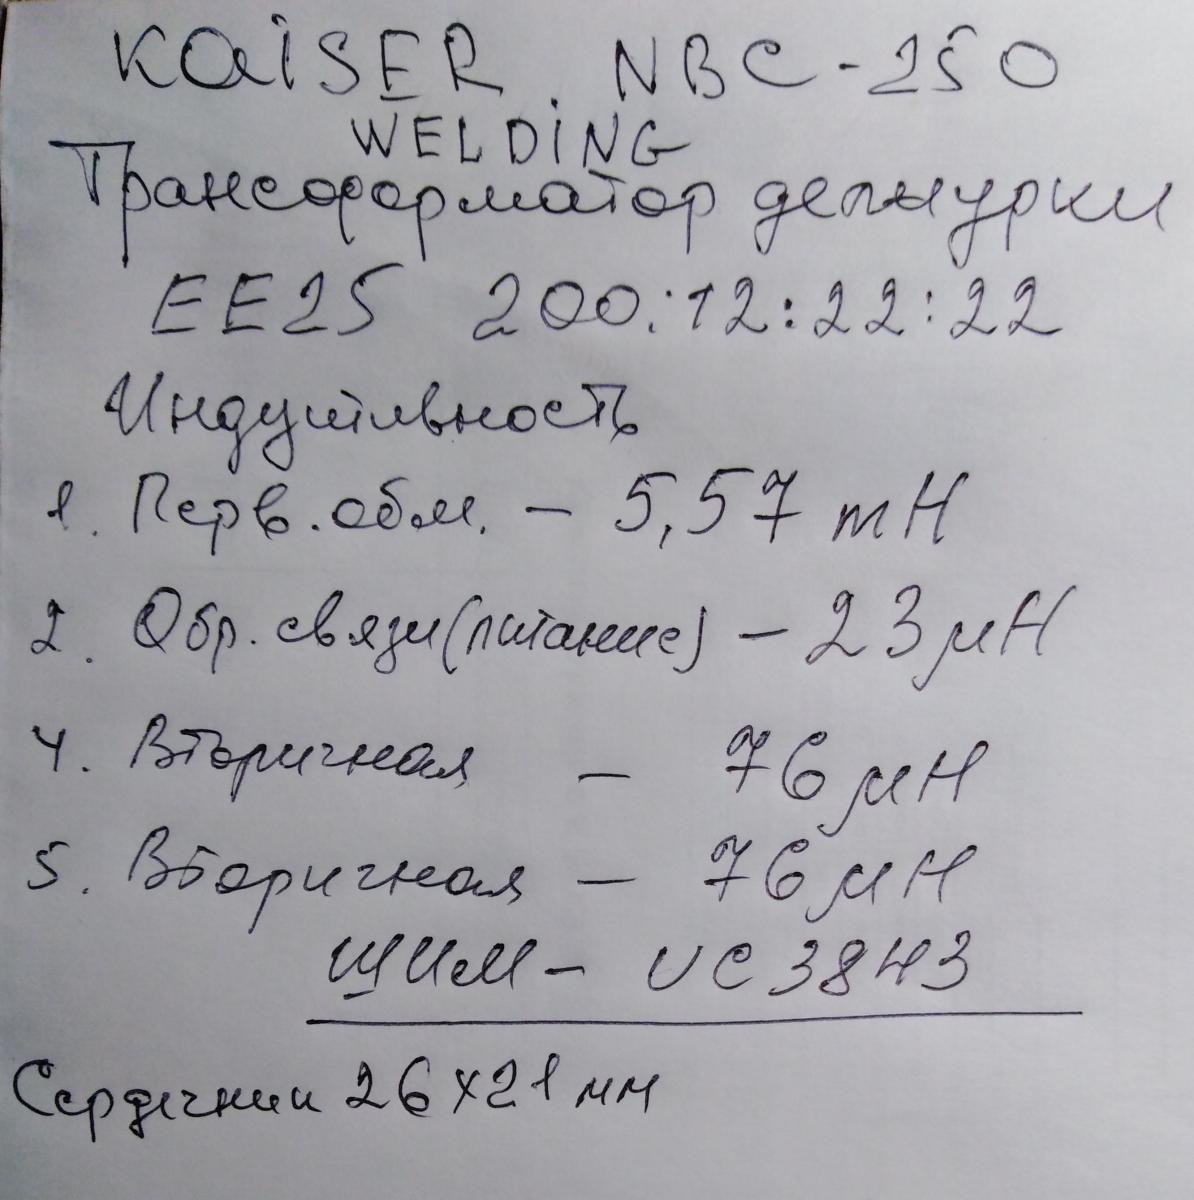 KAiSER NBC-250
WELDiNG
Трансформатор дежурки
EE25 200:12:22:22
Индуктивность
1. Перв. обм. - 5,57 mH
2. Обр. связи (питание) - 23 μH
4. Вторичная - 76 μH
5. Вторичная - 76 μH
ШИМ - UC3843
Сердечник 26x21 мм